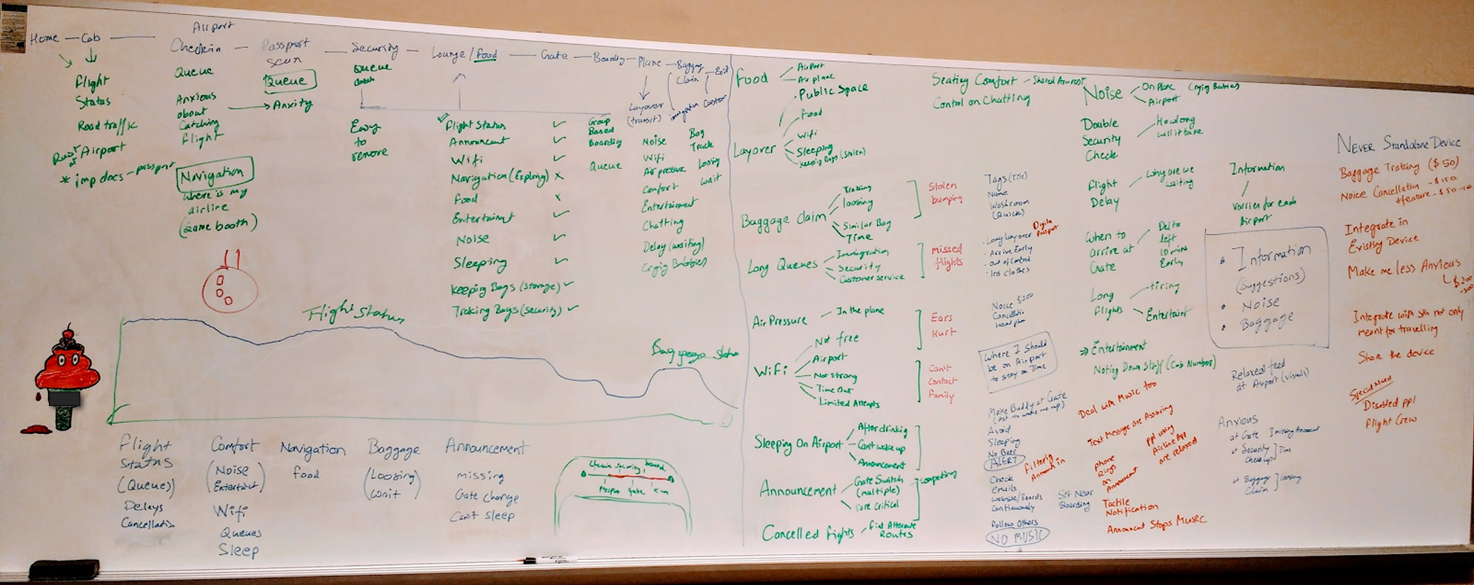 Home — Cab —
Airport
Checkin — Passport scan — Security — Lounge / Food — Gate — Boardig — Plane — Baggage Claim — Exit
Flight
Status
Road traffic
Airport
* imp docs - passport
Queue
Anxious
about
Catching
flight
Navigation
where is my
airline
(same booth)
Queue
→ Anxity
Queue
Easy
to
remove
Layover
(transit)
Flight Status ✓
Announcmt ✓
Wifi ✓
Navigation (Exploring) x
Food x
Entertaimt ✓
Noise ✓
Sleeping ✓
Keeping Bags (storage) ✓
Traking Bags (security) ✓
Group
Based
Boarding
Queue
Noise
Wifi
Air pressure
Comfort
Entertainment
Chatting
Delay (waiting)
Bag
Track
Loosing
Wait
Flight Status
Baggage status
Flight
Status
(Queue)
Delays
Cancellation
Comfort
(Noise
Entertaimt)
Wifi
Queues
Sleep
Navigation
food
Baggage
(Loosing)
wait
Announcement
missing
Gate change
Can't sleep
Food
Airport
Air plane
Public Space
Layover
Food
Wifi
Sleeping
Keepig Bags (stolen)
Baggage Claim
Traking
loosing
Similar Bag
Time
Stolen
bumping
Long Queues
Immigration
Security
Customer service
missed
flights
Air Pressure — In the plane
Ears
Hurt
WiFi
Not free
Airport
Not strong
Time Out
Limited Attempts
Can't
Contact
Family
Sleeping On Airport
After drinking
Can't wake up
Annoucement
Announcement
Gate Switch
(multiple)
Competing
Cancelled flights
Find Alternate
Routes
Seating Comfort - Shared Armrest
Control on Chatting
Tags (Tile)
Name
Washroom
(Quick)
Digital
Passport
- Long Layover
- Arrive Early
- Out of Control
Noice $200
Where I Should
be on Airport
to stay on Time
Make Buddy at Gate
Avoid
Sleeping
No Beer
ALERT
Check
emails
Website/Boards
Continuously
Follow Others
NO MUSIC
Filtering
Set Near
Boarding
Noise
On Plane
Airport
Crying Babies
Double
Security
Check
How long
will it take
Flight
Delay
Why are we
waiting
When to
arrive at
Gate
Delta
left
10 min
Early
Long
flights
tiring
Entertaimt
⇒ Entertainment
Noting Down Stuff (Cab Number)
Deal with Music too
Text Message are Assuring
phone
Rings
on
Announcemnt
ppl using
Airline App
are relaxed
Tactile
Notification
Announcmt Stops Music
Information
Varries for each
Airport
• Information
(Suggestions)
• Noise
• Baggage
Relaxed feed
at Airport (visuals)
Anxious
at Gate
at Security
Checkups
Time
at Baggage
Claim
Never Standalone Device
Baggage Traking ($50)
Noice Cancellation - $150
Integrate in
Existing Device
Make me less Anxious
Integrate with sth not only
meant for travelling
Share the device
Special Need
Disabled ppl
Flight Crew